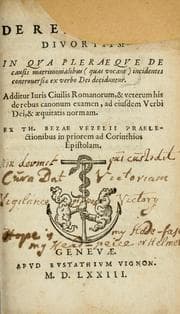 DE RE
DIVORTII
IN QVA PLERAEQVE DE
causis matrimonialibus (quas vocant) incidentes
controuersiæ ex verbo Dei deciduntur.
Additur Iuris Ciuilis Romanorum, & veterum his
de rebus canonum examen, ad eiusdem Verbi
Dei, & æquitatis normam.
EX TH. BEZAE VEZELII PRAELE-
ctionibus in priorem ad Corinthios
Epistolam.
dormit qui custodit
Cura Dat Victoriam
Vigilance Victory
Hope is my Head-
my Heart or Helmet
GENEVÆ
APVD EVSTATHIVM VIGNON.
M. D. LXXIII.